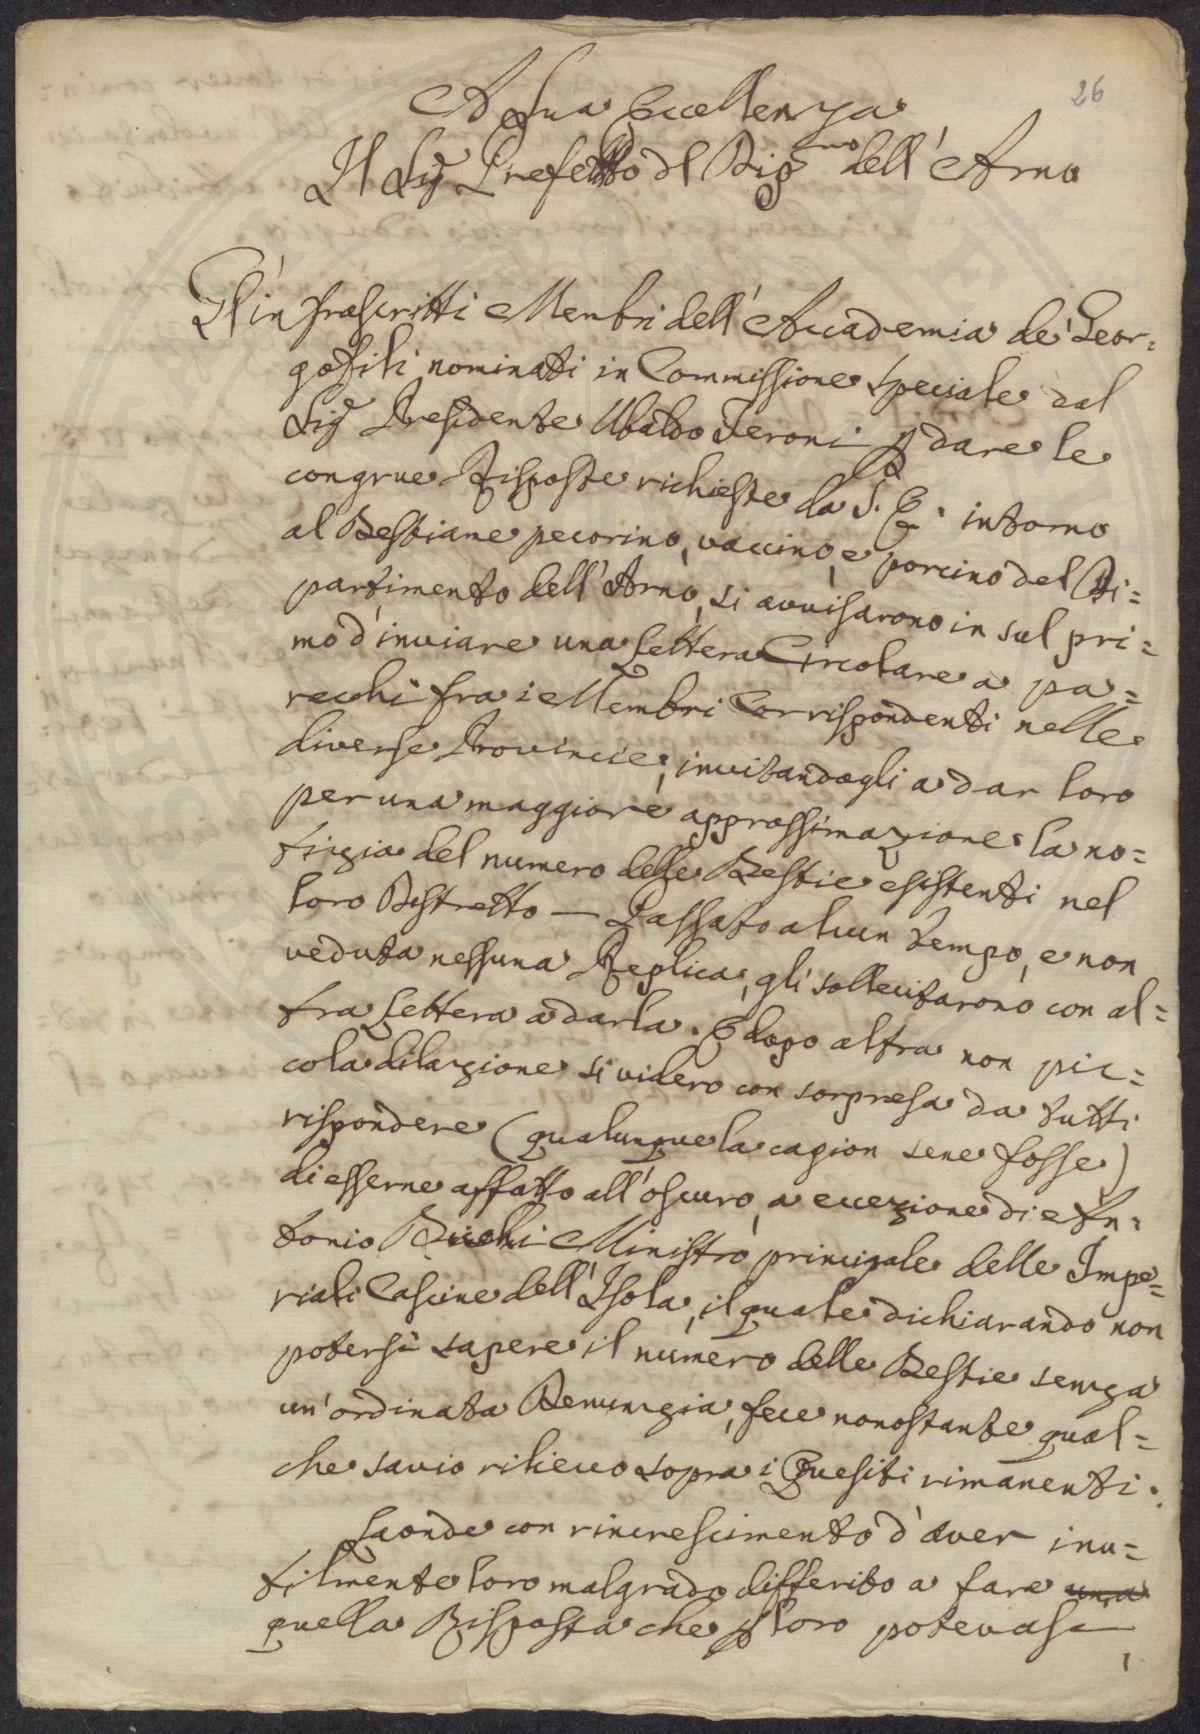 26
A Sua Eccellenza
Il Sig Prefetto dl Dipmo dell'Arno
Gl'infrascritti Membri dell'Accademia de' Geor=
gofili, nominati in Commissione speciale dal
Sig Presidente Ubaldo Feroni p dare le
congrue Risposte richieste da S. E. intorno
al Bestiame pecorino, vaccino, e porcino del Di=
partimento dell'Arno, si avvisarono in sul pri=
mo d'inviare una Lettera Circolare a pa=
recchi fra i Membri Corrispondenti nelle
diverse Provincie, invitandogli a dar loro
per una maggiore approssimazione la no=
tizia del numero delle Bestie esistenti nel
loro Distretto — Passato alcun tempo, e non
veduta nessuna Replica, gli sollecitarono con al=
tra Lettera a darla. E dopo altra non pic=
cola dilazione si videro con sorpresa da tutti
rispondere (qualunque la cagion sene fosse)
di esserne affatto all'oscuro, a eccezione di An=
tonio Bicchi Ministro principale delle Impe=
riali Cascine dell'Isola, il quale dichiarando non
potersi sapere il numero delle Bestie senza
un'ordinata Denunzia, fece nonostante qual=
che savio rilievo sopra i Quesiti rimanenti.
Laonde con rincrescimento d'aver inu=
tilmente loro malgrado differito a fare una
quella Risposta che p loro potevasi